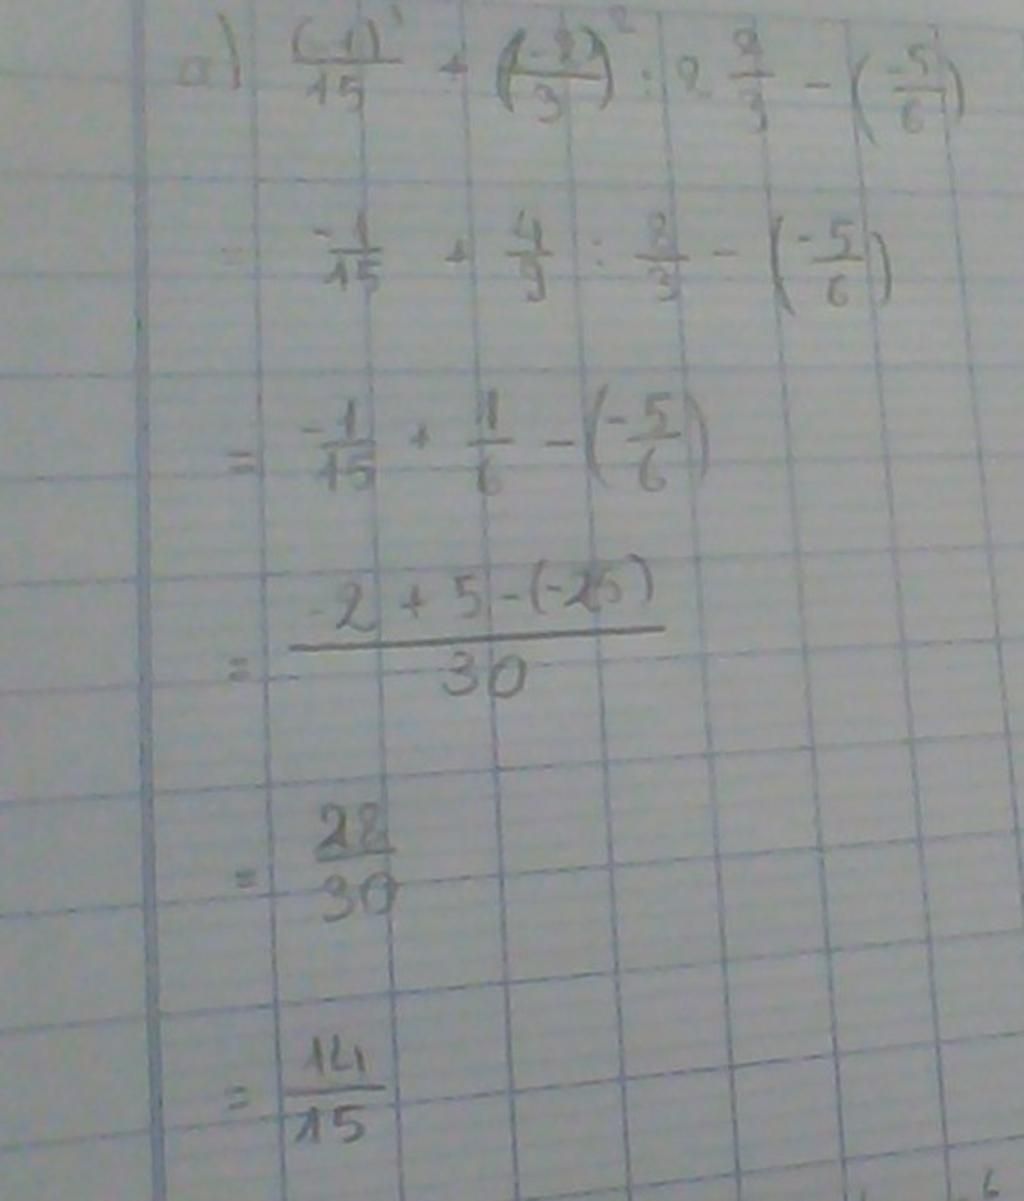 a) (-1)^1/15 + (-2/3)^2 : 2 2/3 - (-5/6)
= -1/15 + 4/9 : 8/3 - (-5/6)
= -1/15 + 1/6 - (-5/6)
= -2 + 5 - (-25) / 30
= 28/30
= 14/15